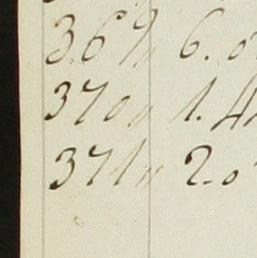 369 " 6. 0
370 " 1. 4
371 " 2. 0